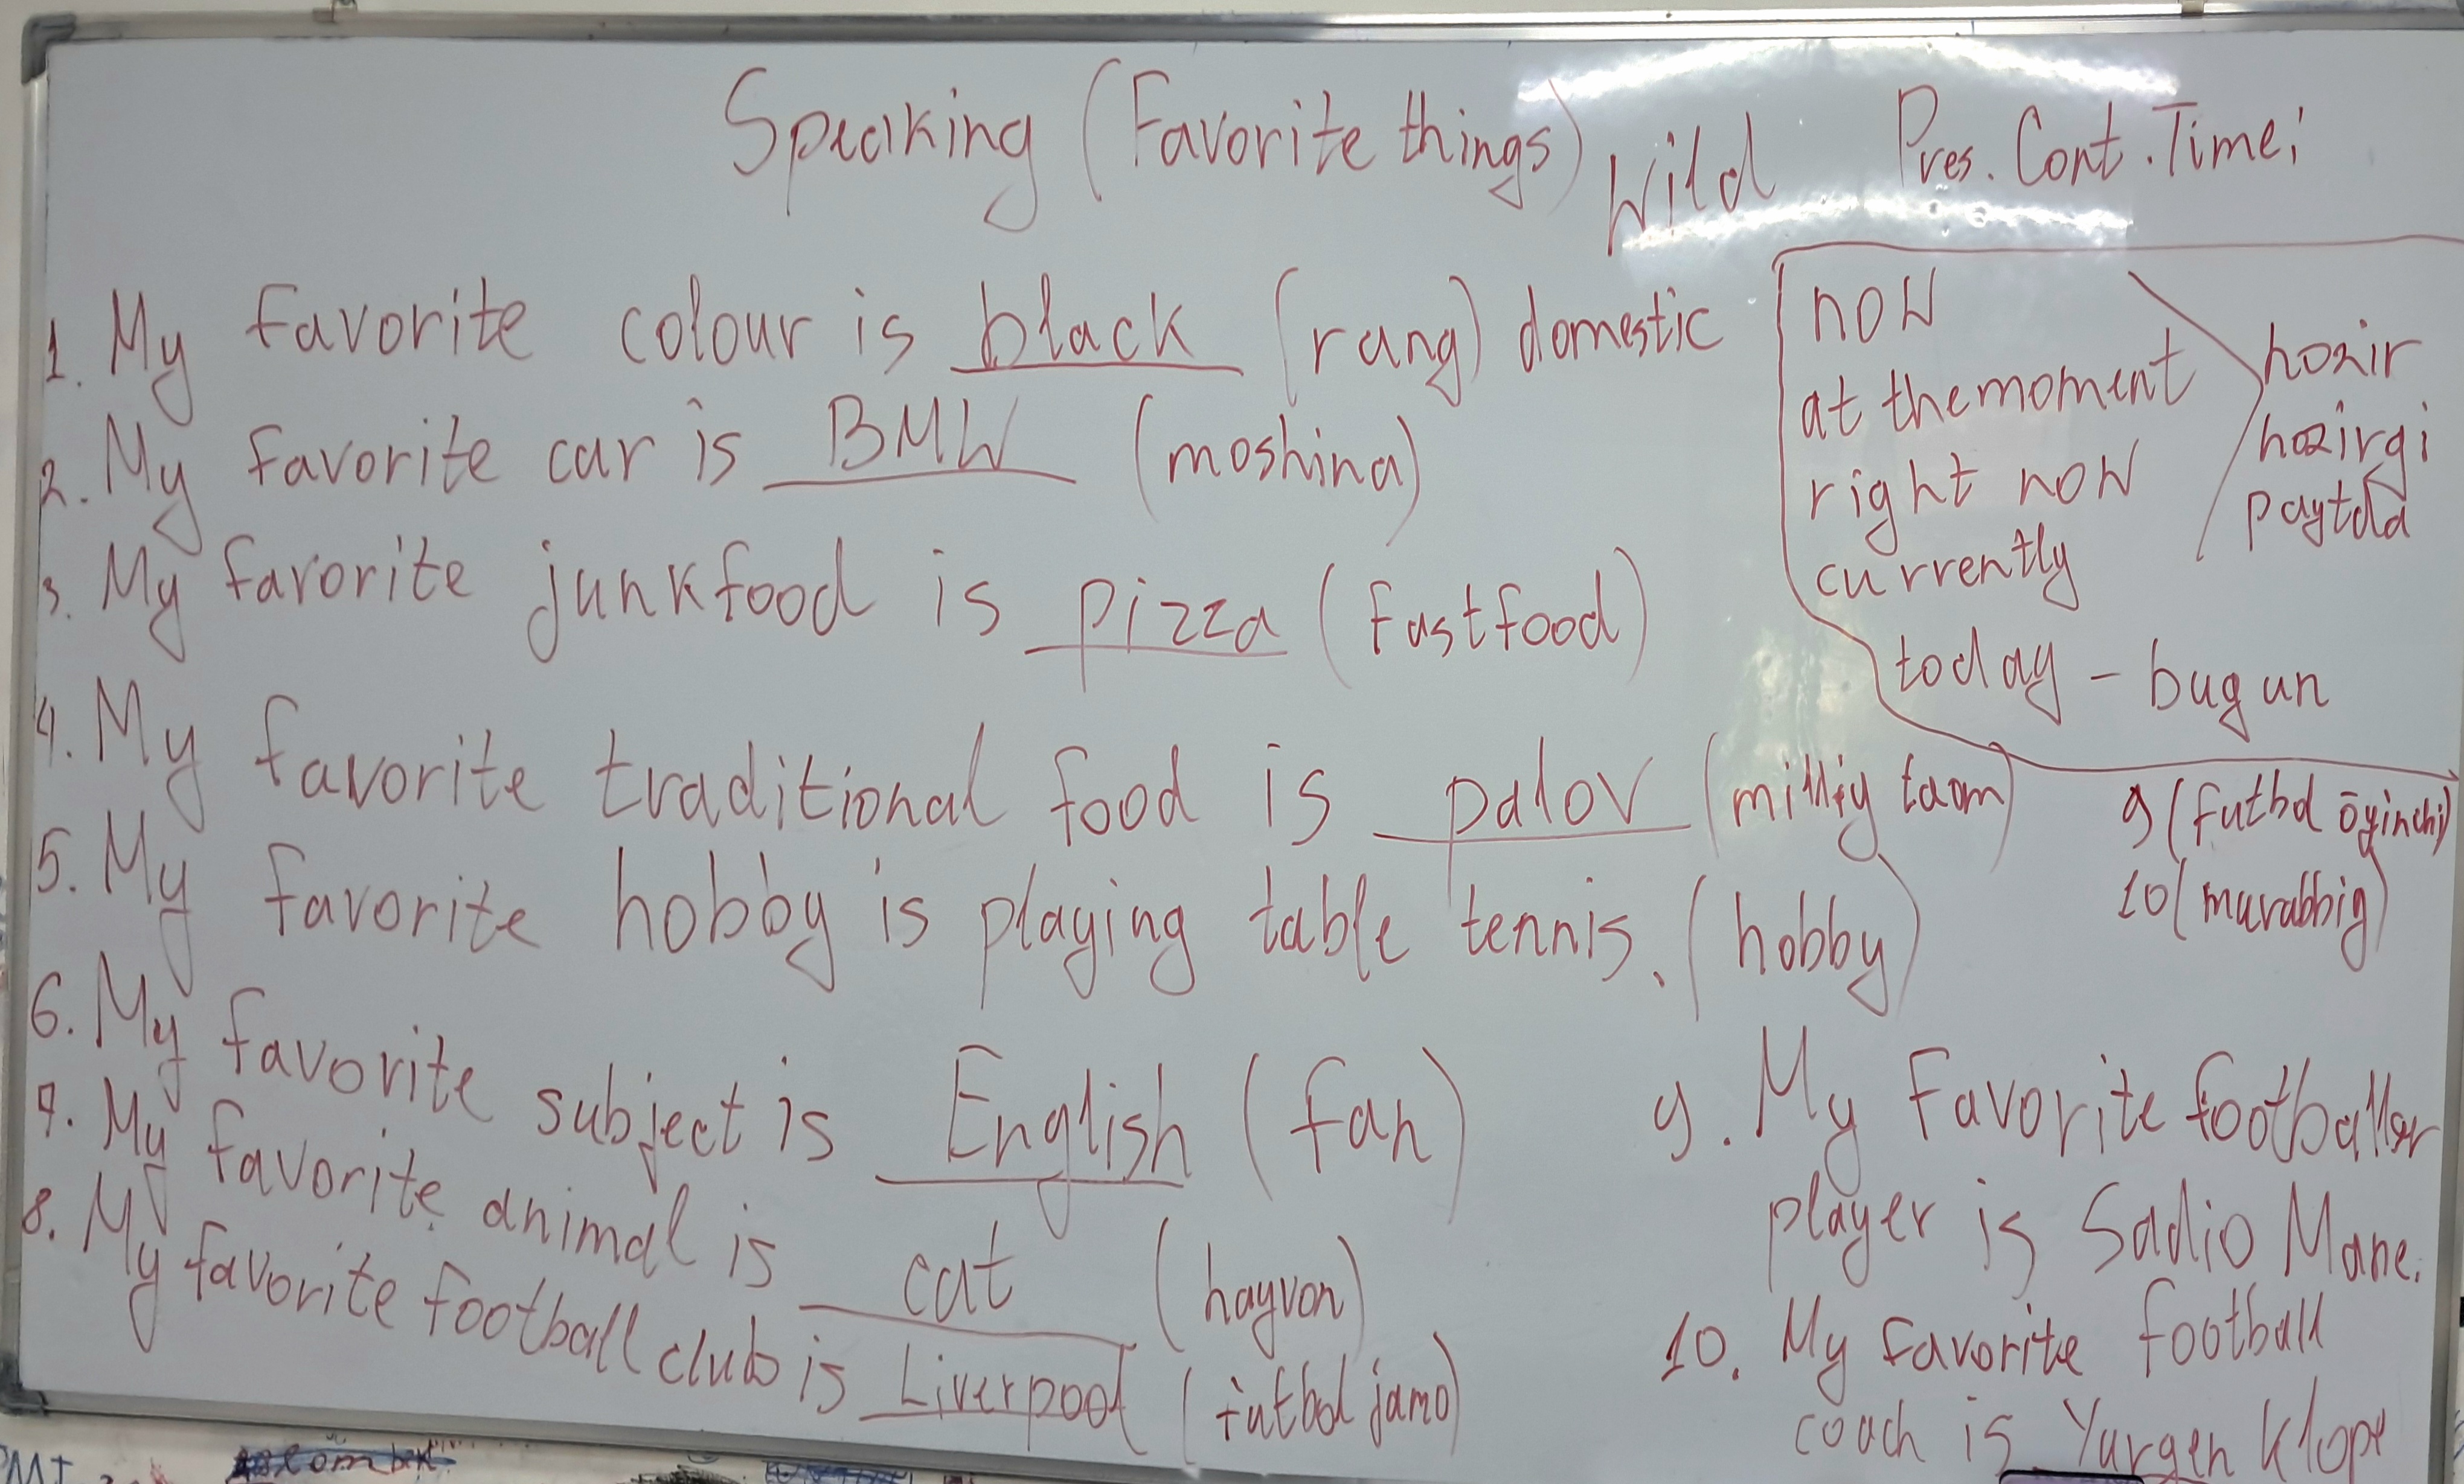 Speaking (Favorite things)
Wild
Pres. Cont. Time:
1. My favorite colour is black (rang) domestic
2. My favorite car is BMW (moshina)
3. My favorite junkfood is pizza (fastfood)
4. My favorite traditional food is palov (milliy taom)
5. My favorite hobby is playing table tennis. (hobby)
6. My favorite subject is English (fan)
7. My favorite animal is cat (hayvon)
8. My favorite football club is Liverpool (futbol jamo)
now
at the moment
right now
currently
hozir
hozirgi
paytda
today - bugun
9 (futbol o'yinchi)
10 (murabbiy)
9. My favorite footballer
player is Sadio Mane.
10. My favorite football
coach is Yurgen Klopp